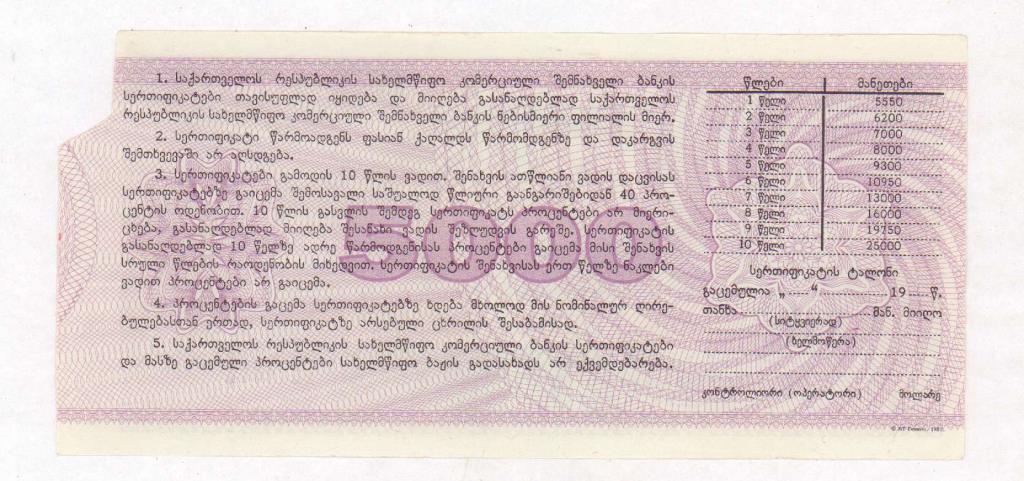 1. საქართველოს რესპუბლიკის სახელმწიფო კომერციული შემნახველი ბანკის
სერთიფიკატები თავისუფლად იყიდება და მიიღება გასანაღდებლად საქართველოს
რესპუბლიკის სახელმწიფო კომერციული შემნახველი ბანკის ნებისმიერი ფილიალის მიერ.
2. სერთიფიკატი წარმოადგენს ფასიან ქაღალდს წარმომდგენზე და დაკარგვის
შემთხვევაში არ აღსდგება.
3. სერთიფიკატები გამოდის 10 წლის ვადით. შენახვის ათწლიანი ვადის დაცვისას
სერთიფიკატებზე გაიცემა შემოსავალი საშუალოდ წლიური გაანგარიშებიდან 40 პრო-
ცენტის ოდენობით. 10 წლის გასვლის შემდეგ სერთიფიკატს პროცენტები არ მიერი-
ცხება, გასანაღდებლად მიიღება შესანახი ვადის შეზღუდვის გარეშე. სერთიფიკატის
გასანაღდებლად 10 წელზე ადრე წარმოდგენისას პროცენტები გაიცემა მისი შენახვის
სრული წლების რაოდენობის მიხედვით. სერთიფიკატის შენახვისას ერთ წელზე ნაკლები
ვადით პროცენტები არ გაიცემა.
4. პროცენტების გაცემა სერთიფიკატებზე ხდება მხოლოდ მის ნომინალურ ღირე-
ბულებასთან ერთად, სერთიფიკატზე არსებული ცხრილის შესაბამისად.
5. საქართველოს რესპუბლიკის სახელმწიფო კომერციული ბანკის სერთიფიკატები
და მასზე გაცემული პროცენტები სახელმწიფო ბაჟის გადასახადს არ ექვემდებარება.
5000
წლები მანეთები
1 წელი 5550
2 წელი 6200
3 წელი 7000
4 წელი 8000
5 წელი 9300
6 წელი 10950
7 წელი 13000
8 წელი 16000
9 წელი 19750
10 წელი 25000
სერთიფიკატის ტალონი
გაცემულია „ “ 19 წ.
თანხა მან. მიიღო
(სიტყვიერად)
(ხელმოწერა)
კონტროლიორი (ოპერატორი) მოლარე